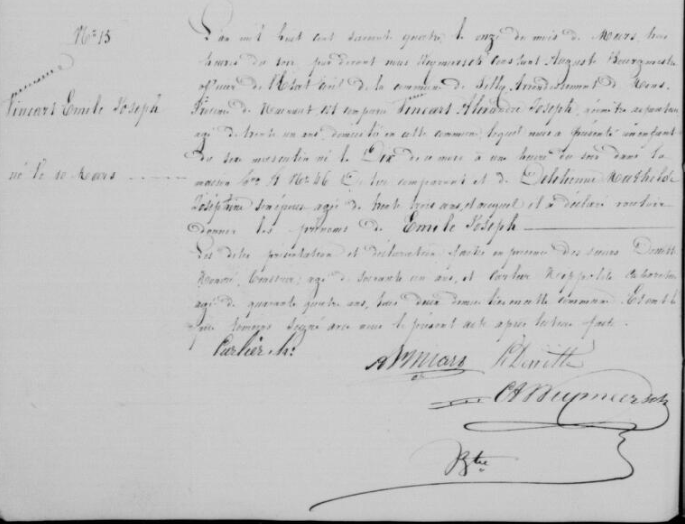 N° 13
Vincart Emile Joseph
né le 10 Mars
L'an mil huit cent soixante quatre le onze du mois de Mars, huit
heures du soir, par devant nous Weymeersch Constant Auguste Bourgmestre
officier de l'Etat Civil de la commune de Silly, Arrondissement de Mons,
Province de Hainaut est comparu Vincart Alexandre Joseph,
agé de trente un ans, domicilié en cette commune, lequel nous a présenté un enfant
du sexe masculin né le Dix de ce mois à une heure du soir dans la
maison N° 46 De lui comparant et de Mathilde
Joséphine son épouse agée de trente trois ans, et auquel il a déclaré vouloir
donner les prénoms de Emile Joseph
Les dites présentation et déclaration faites en présence des sieurs
agé de soixante un ans, et Carlier Hyppolite
agé de quarante quatre ans, tous deux domiciliés en cette commune Et ont les
père témoins signé avec nous le présent acte après lecture faite.
Carlier h.
A Vincart
CA Weymeersch
Btre